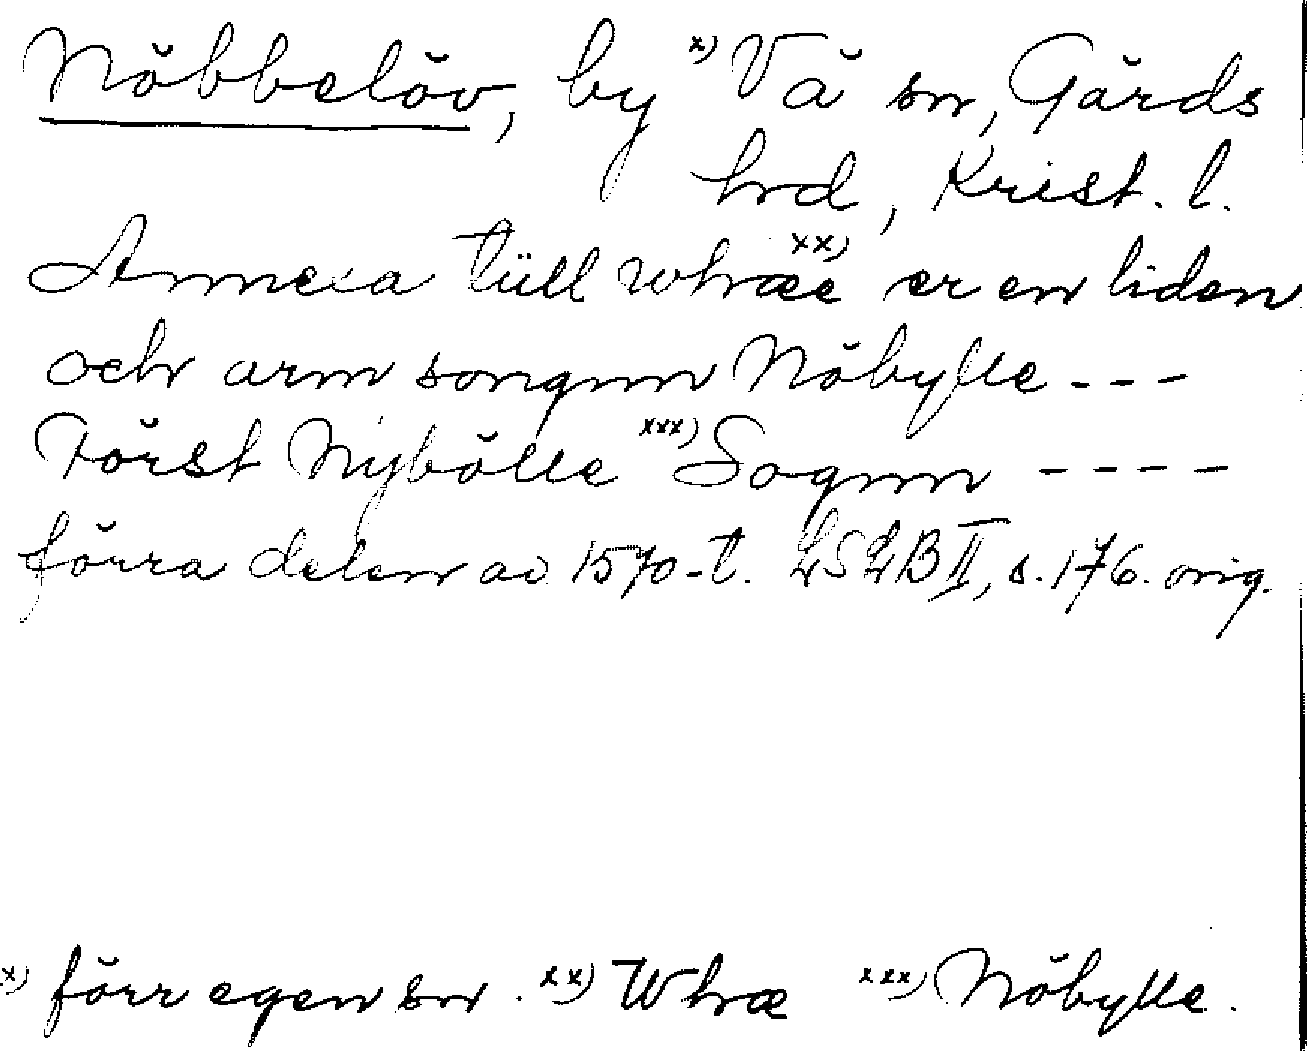 Nöbbelöv, by x) Vä sn, Gärds
hrd, Krist. l.
Annexa tüll whæe xx) er en liden
och arm songnn Nöbylle ---
Först Nÿbölle xxx) Sognn ----
förra delen av 1570-t. LSLB II, s. 176. orig.
x) förr egen sn. xx) Whæ xxx) Nöbylle.